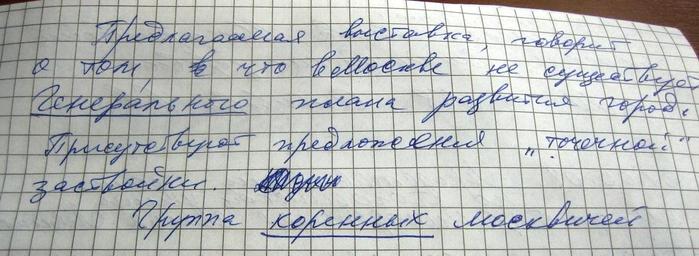 Предлагаемая выставка, говорит
о том, что в Москве не существует
Генерального плана развития города
Присутствуют предложения „точечной"
застройки.
Группа коренных москвичей